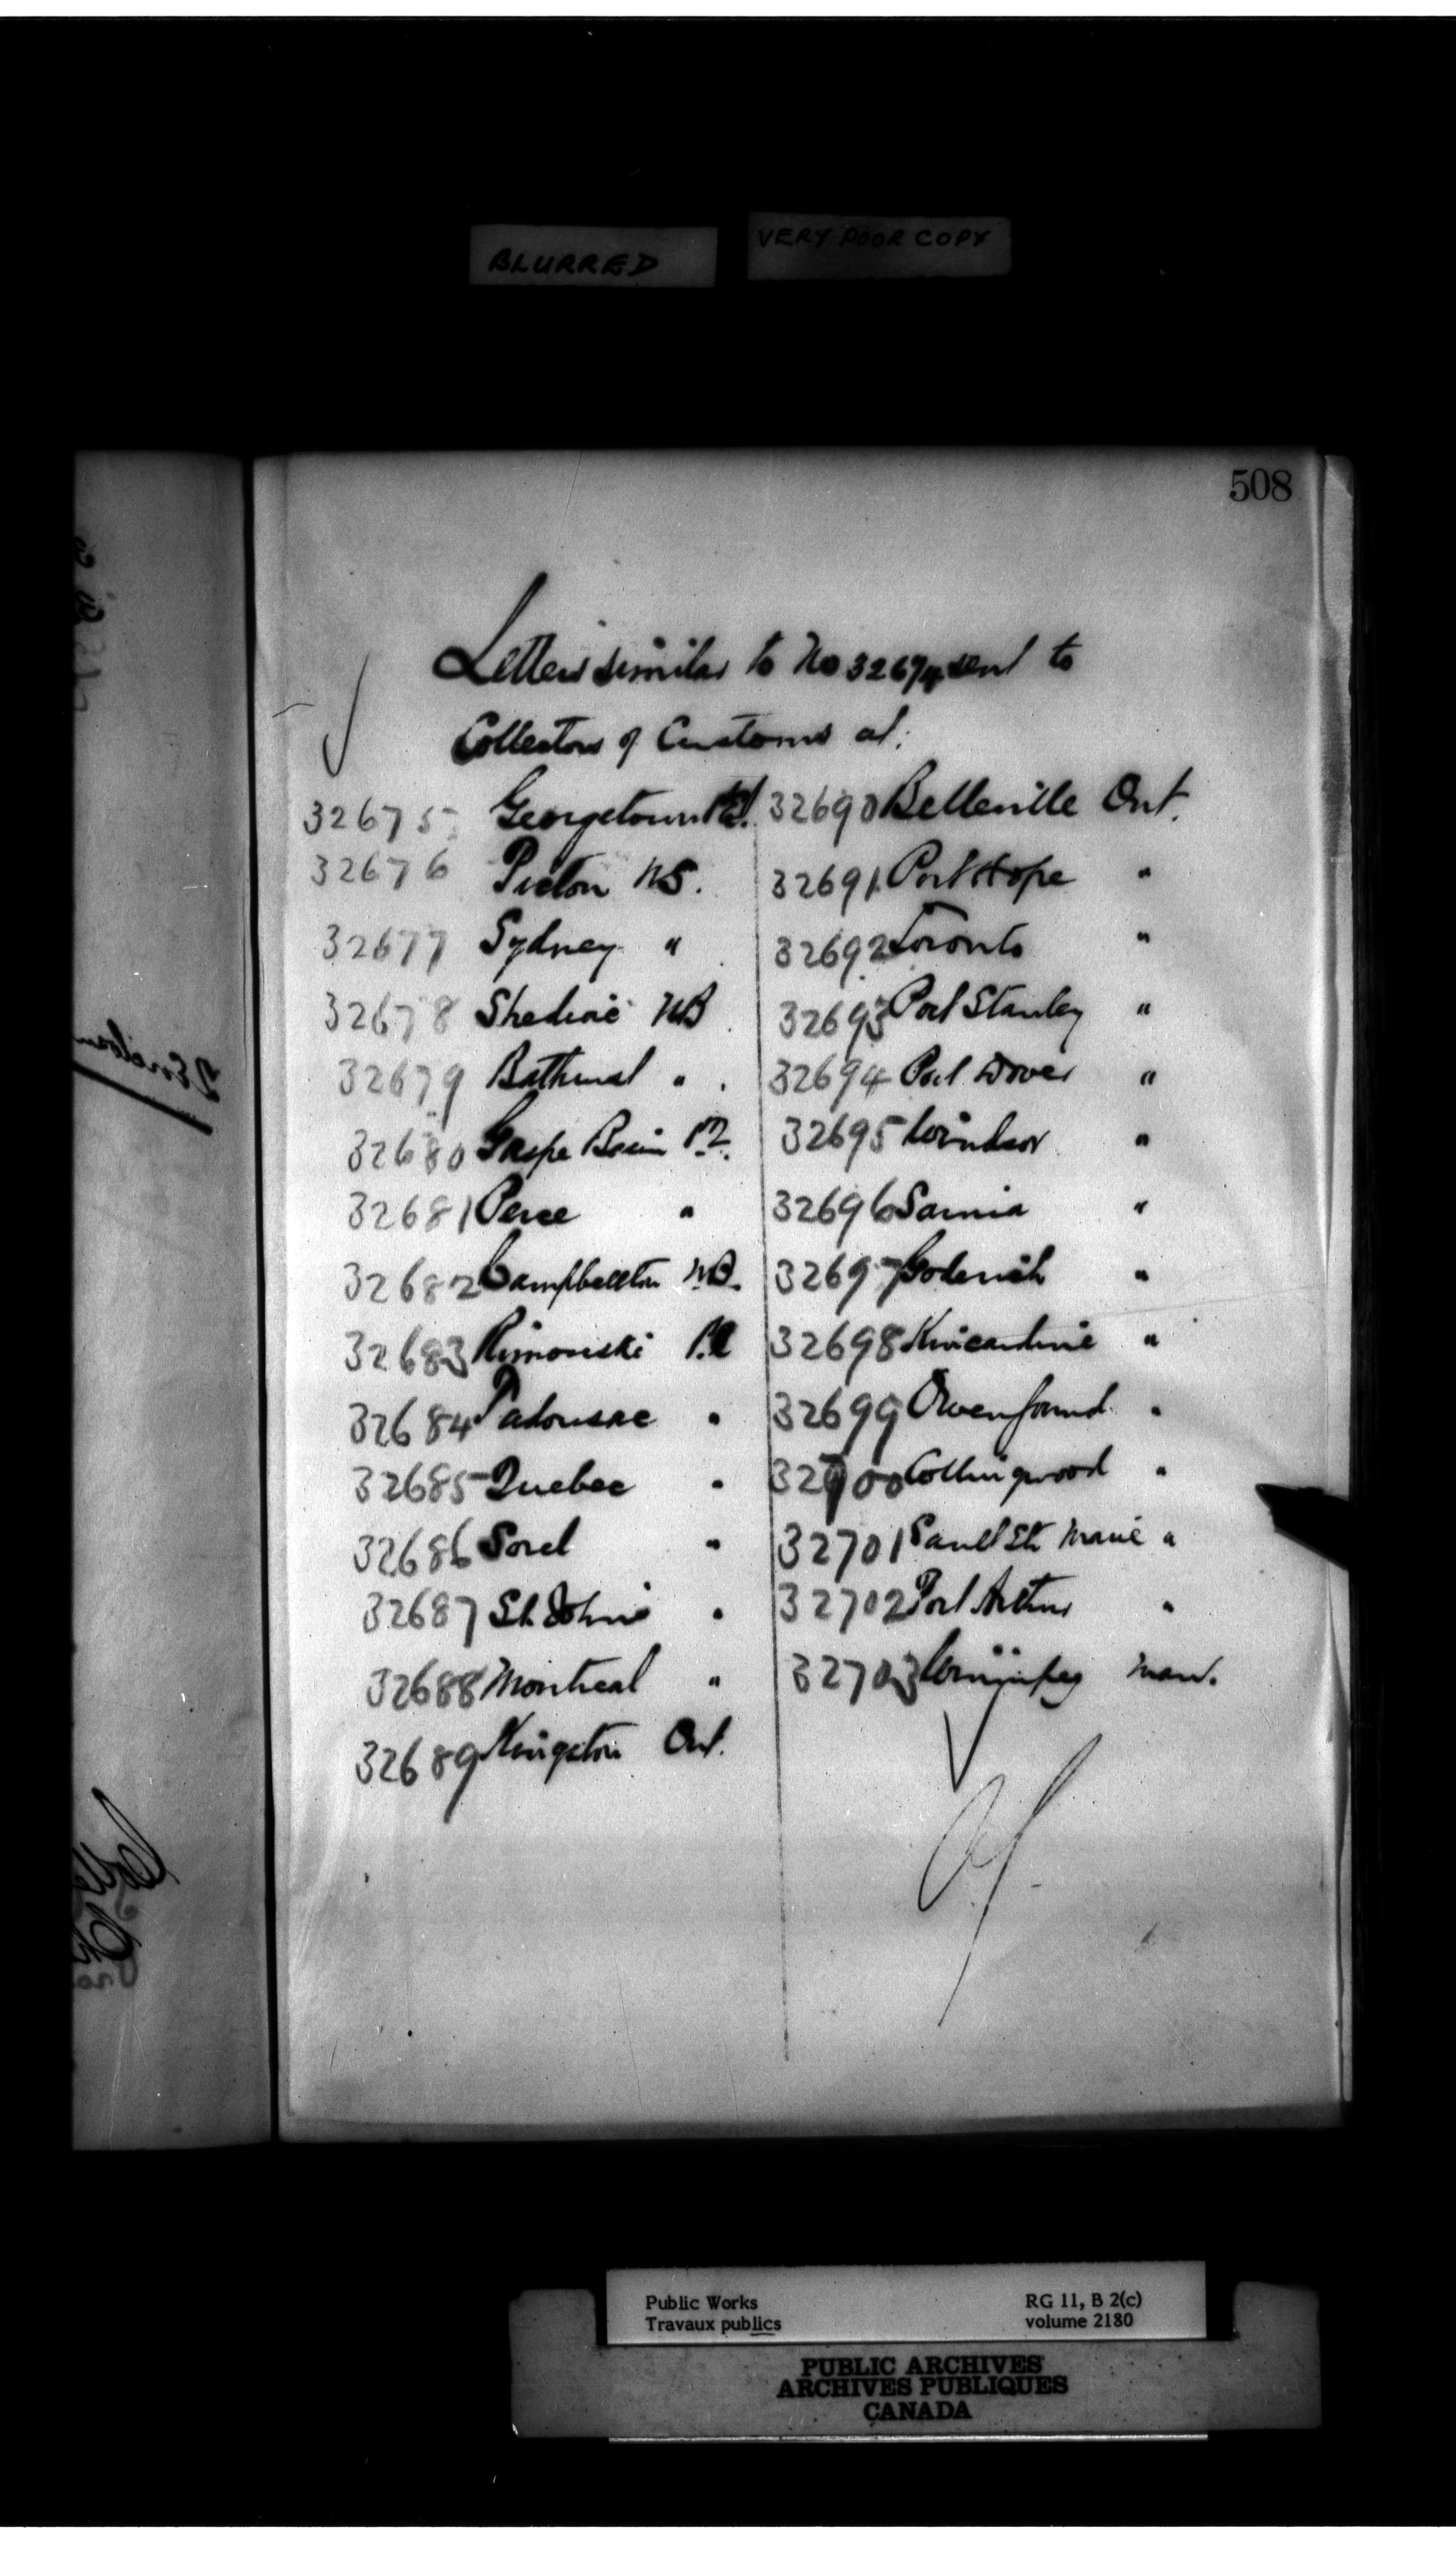 BLURRED
VERY POOR COPY
508
Letters similar to No 32674 sent to
Collectors of Customs at:
32675 Georgetown PEI
32676 Pictou NS.
32677 Sydney "
32678 Shediac NB
32679 Bathurst "
32680 Gaspe Basin P.Q.
32681 Perce "
32682 Campbellton N.B.
32683 Rimouski P.Q
32684 Tadousac "
32685 Quebec "
32686 Sorel "
32687 St. Johns "
32688 Montreal "
32689 Kingston Ont.
32690 Belleville Ont.
32691 Port Hope "
32692 Toronto "
32693 Port Stanley "
32694 Port Dover "
32695 Windsor "
32696 Sarnia "
32697 Goderich "
32698 Kincardine "
32699 Owen Sound "
32700 Collingwood "
32701 Sault Ste Marie "
32702 Port Arthur "
32703 Winnipeg Man.
Public Works
Travaux publics
RG 11, B 2(c)
volume 2180
PUBLIC ARCHIVES
ARCHIVES PUBLIQUES
CANADA